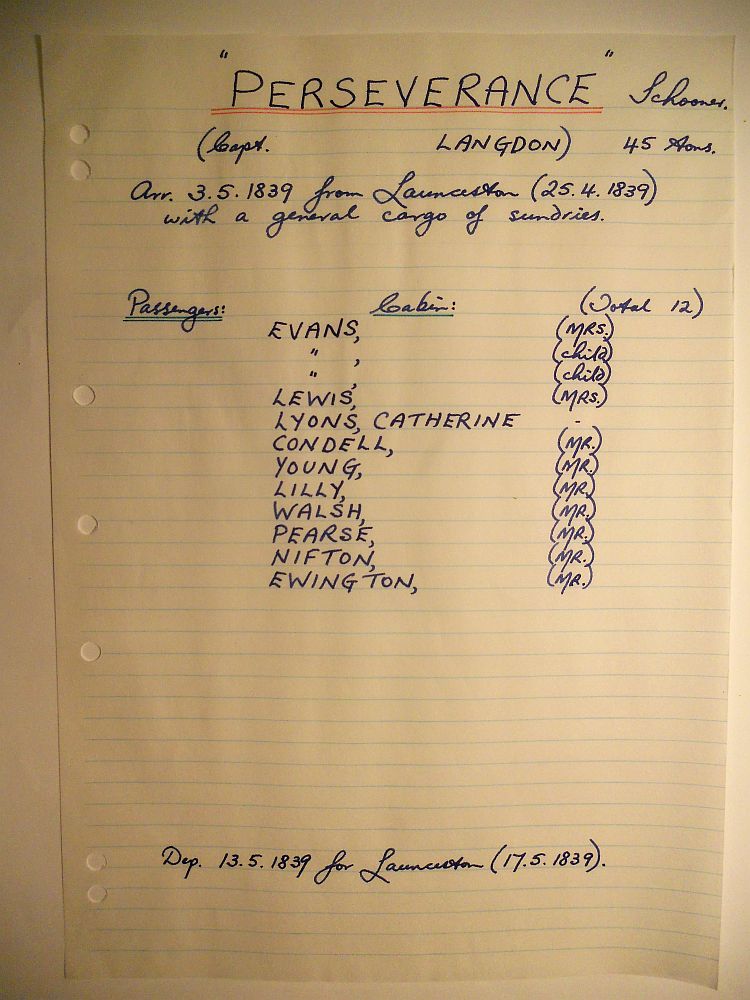 "PERSEVERANCE" Schooner.
(Capt. LANGDON) 45 tons.
Arr. 3.5.1839 from Launceston (25.4.1839)
with a general cargo of sundries.
Passengers: Cabin: (Total 12)
EVANS, (MRS.)
" , (child)
" , (child)
LEWIS, (MRS.)
LYONS, CATHERINE -
CONDELL, (MR.)
YOUNG, (MR.)
LILLY, (MR.)
WALSH, (MR.)
PEARSE, (MR.)
NIFTON, (MR.)
EWINGTON, (MR.)
Dep. 13.5.1839 for Launceston (17.5.1839).